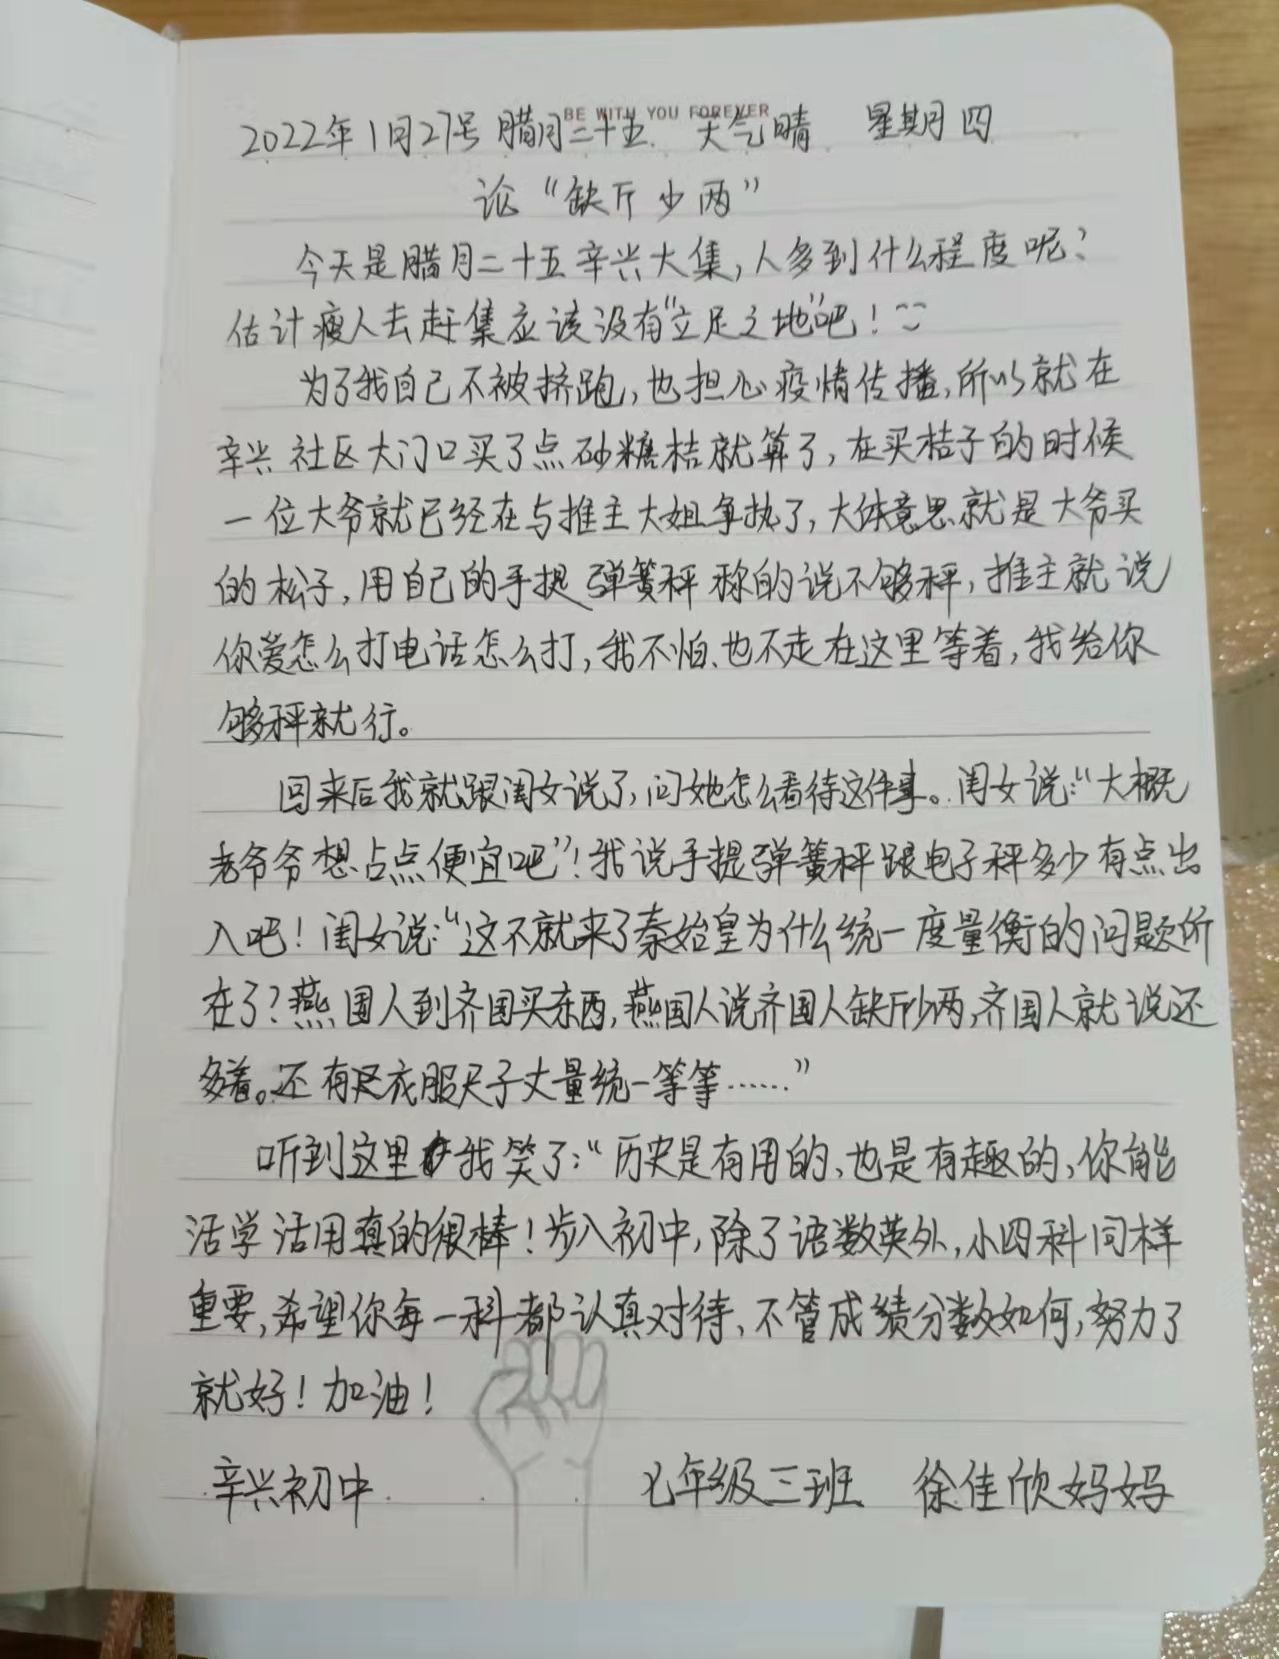 BE WITH YOU FOREVER
2022年1月27号 腊月二十五. 天气晴 星期四
论“缺斤少两”
今天是腊月二十五辛兴大集,人多到什么程度呢?
估计瘦人去赶集应该没有“立足之地”吧!
为了我自己不被挤跑,也担心疫情传播,所以就在
辛兴社区大门口买了点砂糖桔就算了,在买桔子的时候
一位大爷就已经在与推主大姐争执了,大体意思就是大爷买
的松子,用自己的手提弹簧秤称的说不够秤,推主就说
你爱怎么打电话怎么打,我不怕、也不走在这里等着,我给你
够秤就行。
回来后我就跟闺女说了,问她怎么看待这件事。闺女说:“大概
老爷爷想占点便宜吧”!我说手提弹簧秤跟电子秤多少有点出
入吧!闺女说:“这不就来了秦始皇为什么统一度量衡的问题所
在了?燕国人到齐国买东西,燕国人说齐国人缺斤少两,齐国人就说还
多着。还有尺衣服尺子丈量统一等等……”
听到这里我笑了:“历史是有用的、也是有趣的,你能
活学活用真的很棒!步入初中,除了语数英外,小四科同样
重要,希望你每一科都认真对待、不管成绩分数如何,努力了
就好!加油!
辛兴初中. 七年级三班 徐佳欣妈妈